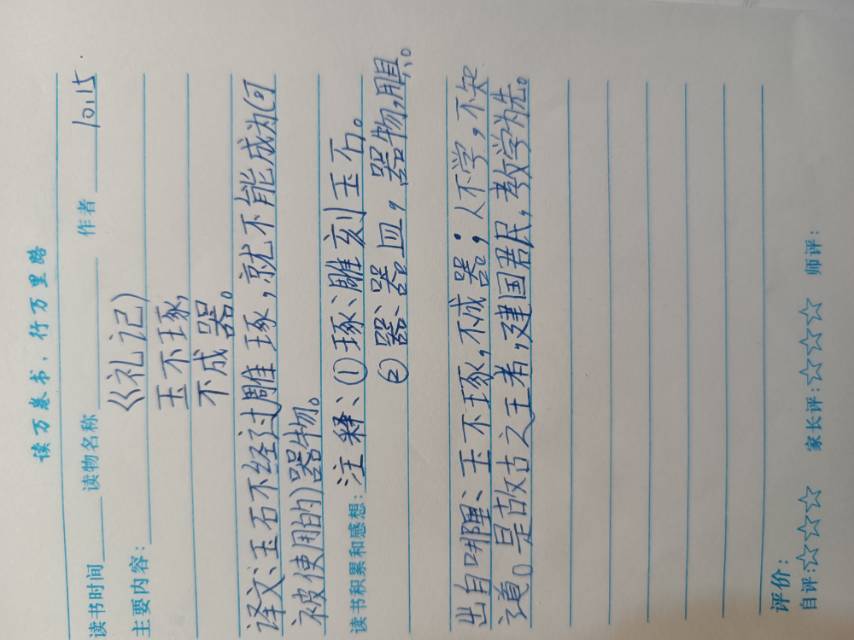 读万卷书，行万里路
读书时间 读物名称 作者 10.15
主要内容：
《礼记》
玉不琢，
不成器。
译文：玉石不经过雕琢，就不能成为(可
被使用的)器物。
读书积累和感想：注释：①琢：雕刻玉石。
②器：器皿，器物，用具。
出自哪里：玉不琢，不成器；人不学，不知
道。是故古之王者，建国君民，教学为先。
评价：
自评：☆☆☆ 家长评：☆☆☆ 师评：